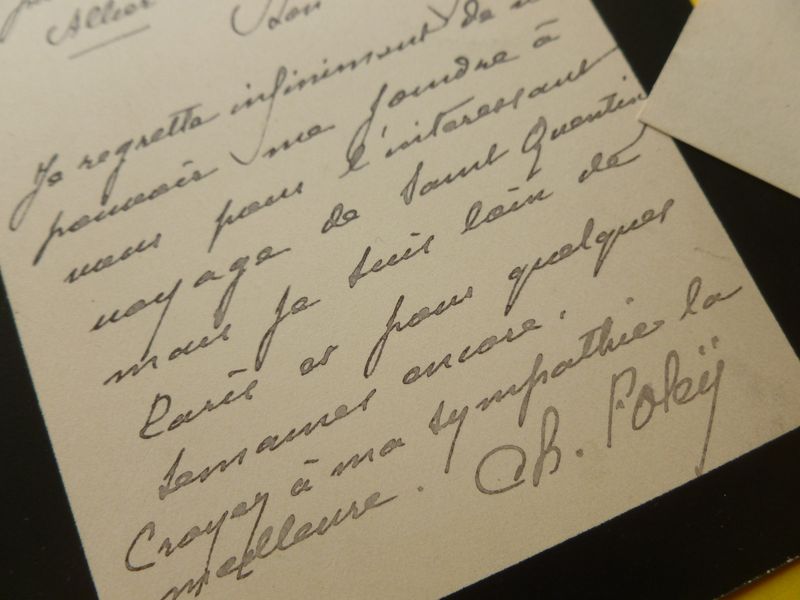 Allier
Je regrette infiniment de
pouvoir me joindre à
vous pour l'interessant
voyage de Saint Quentin
mais je suis loin de
Paris et pour quelques
semaines encore.
Croyez à ma sympathie la
meilleure. Ch. Foleÿ